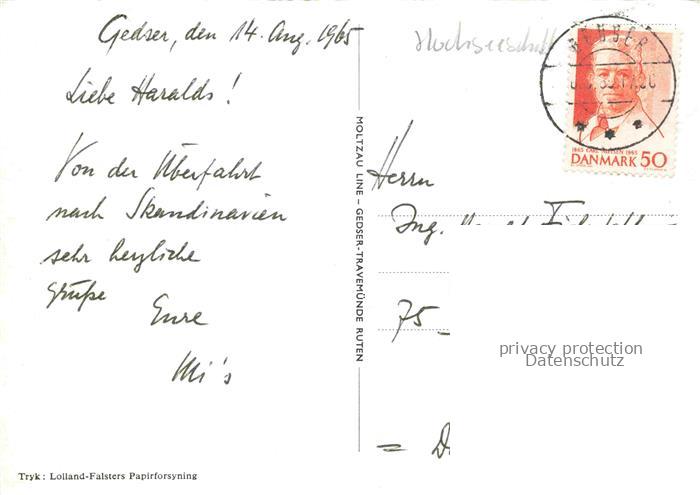 Gedser, den 14. Aug. 1965
Liebe Haralds!
Von der Überfahrt
nach Skandinavien
sehr herzliche
Grüße
Eure
Mi's
Tryk: Lolland-Falsters Papirforsyning
MOLTZAU LINE – GEDSER-TRAVEMÜNDE RUTEN
1865 CARL NIELSEN 1965
DANMARK 50
Herrn
Ing.
75-
privacy protection
Datenschutz
= D